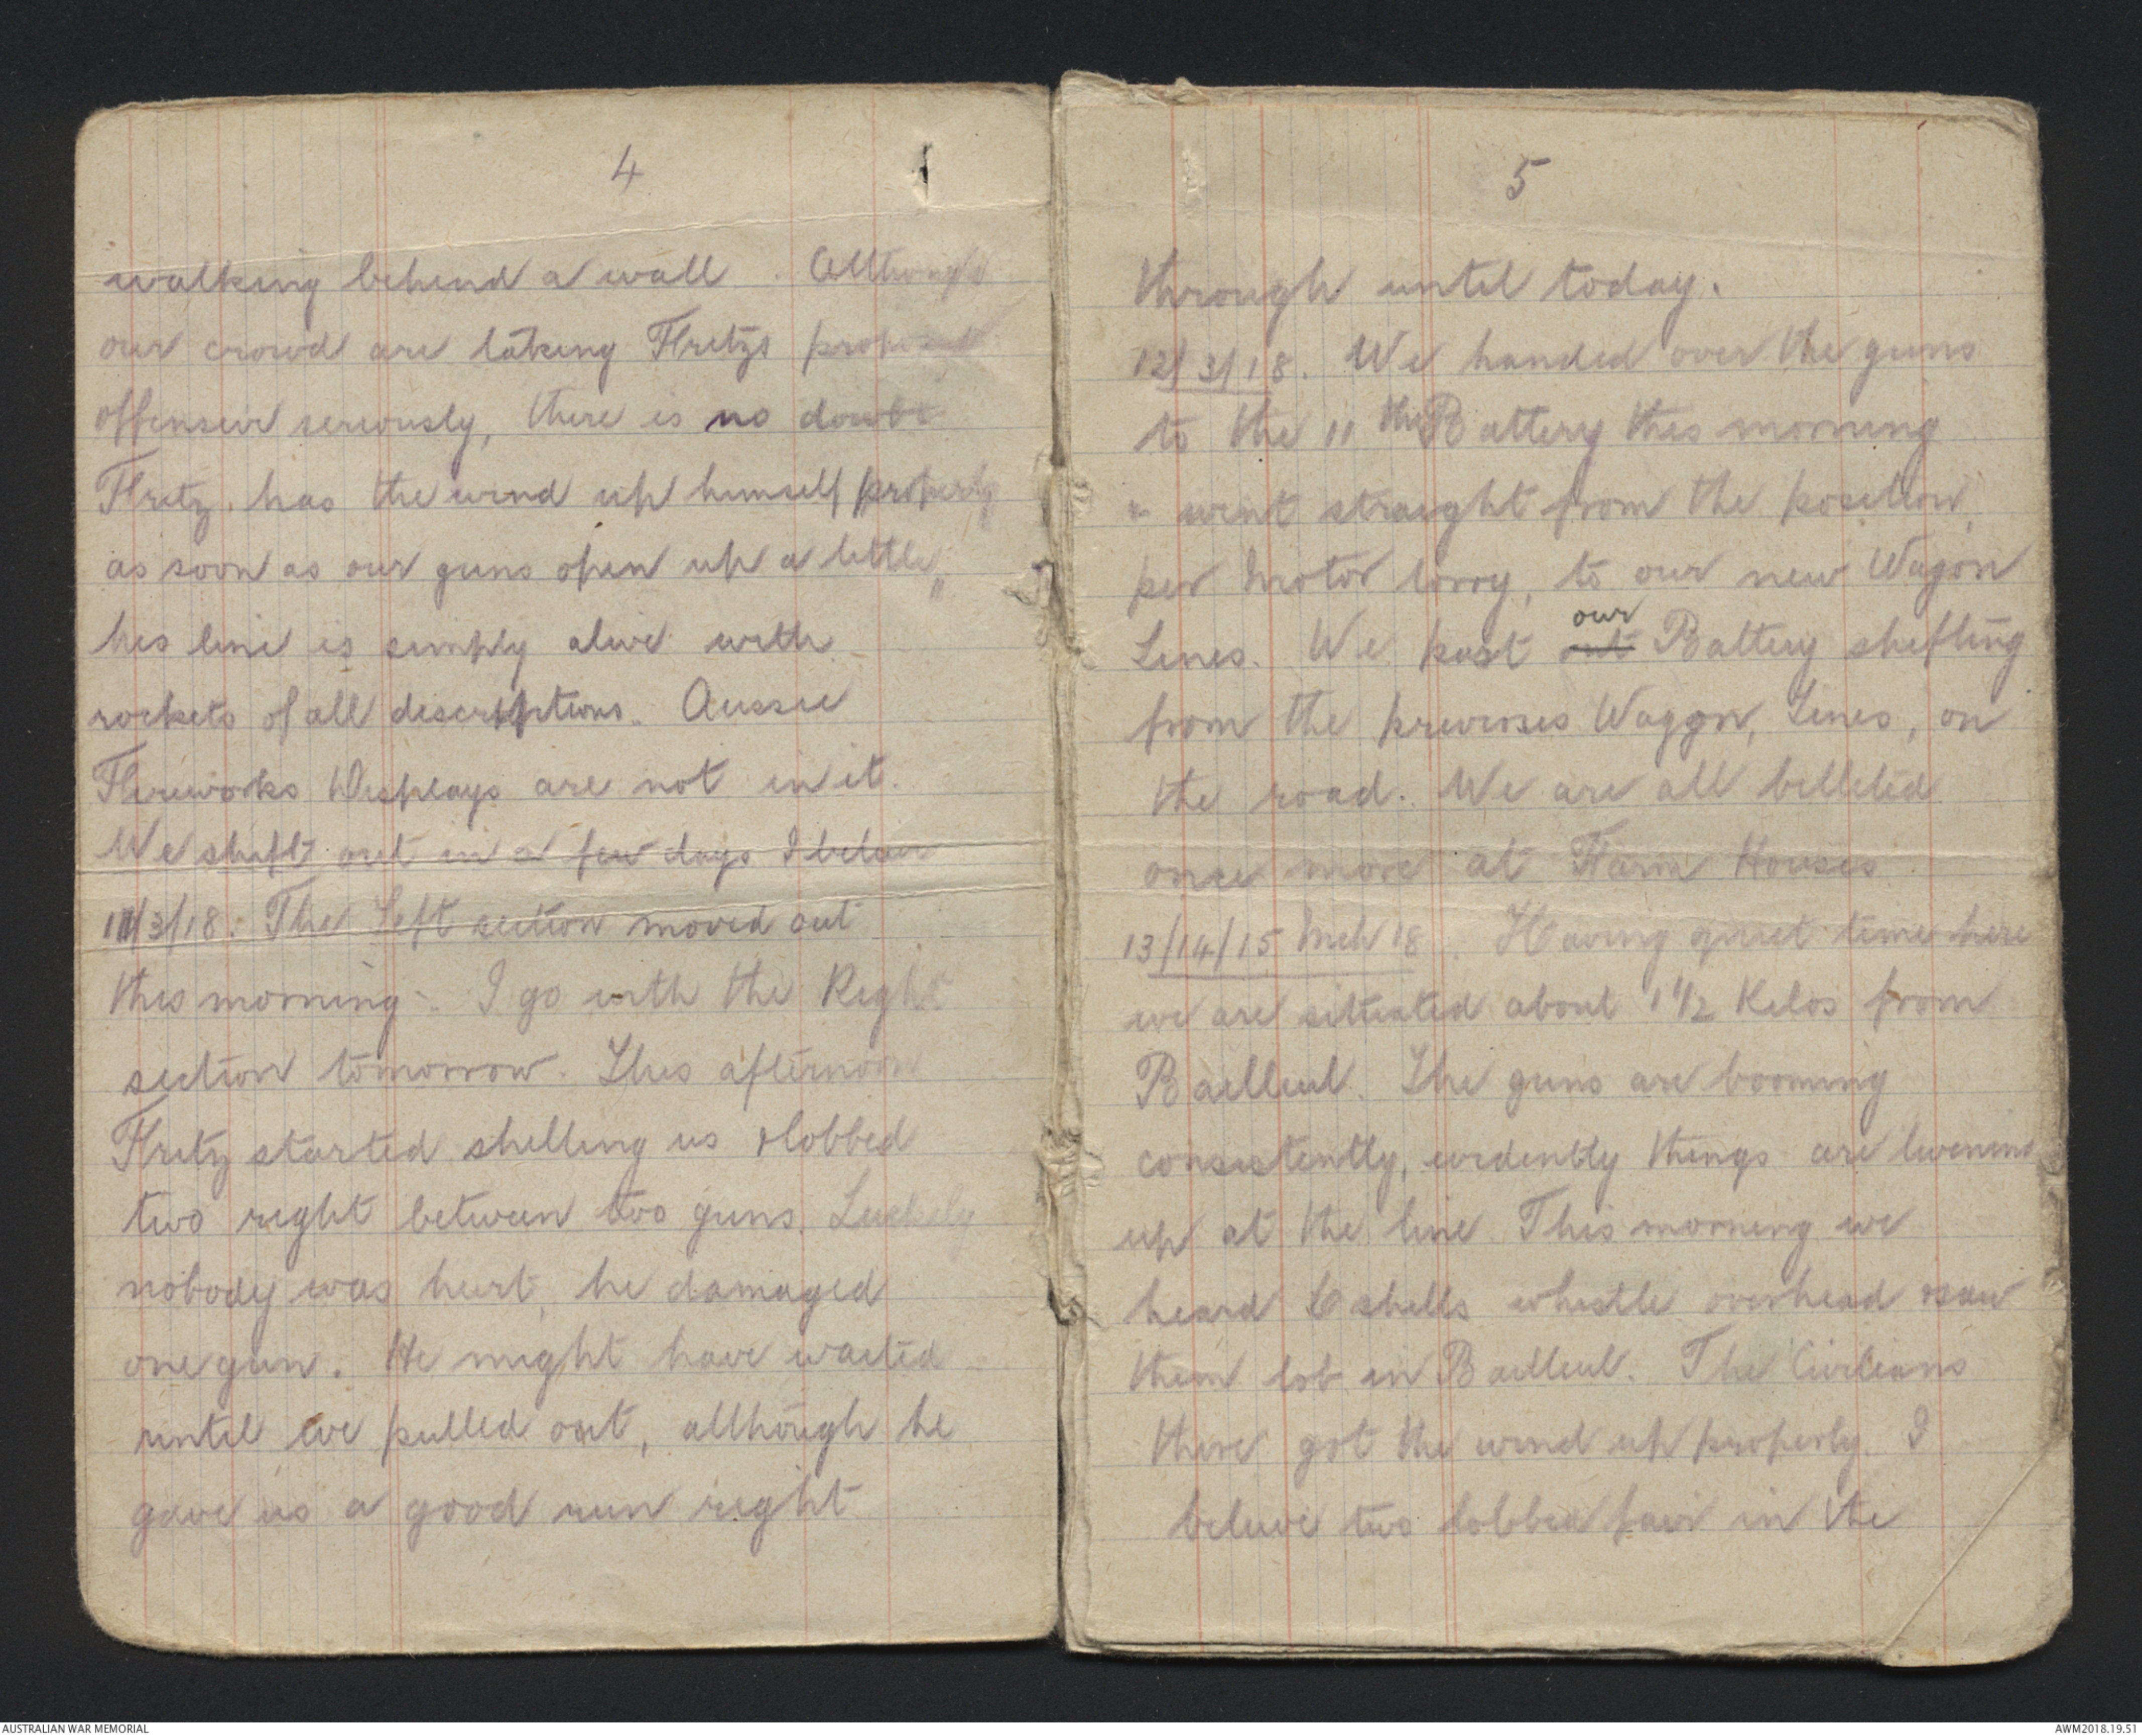 4
walking behind a wall. Although
our crowd are taking Fritzs proposed
offensive seriously, there is no doubt
Fritz has the wind up himself properly
as soon as our guns open up a little,
his line is simply alive with
rockets of all descriptions. Aussie
Fireworks Displays are not in it.
We shift out in a few days I believe
11/3/18. The Left section moved out
this morning. I go with the Right
section tomorrow. This afternoon
Fritz started shelling us & lobbed
two right between two guns. Luckily
nobody was hurt, he damaged
one gun. He might have waited
until we pulled out, although he
gave us a good run right
5
through until today.
12/3/18. We handed over the guns
to the 11th Battery this morning
& went straight from the position,
per Motor lorry, to our new Wagon
Lines. We past out our Battery shifting
from the previous Waggon, Lines, on
the road. We are all billeted
once more at Farm Houses.
13/14/15 Mch 18. Having quiet time here
we are situated about 1 1/2 Kilos from
Bailleul. The guns are booming
consistently, evidently things are livening
up at the line This morning we
heard 6 shells whistle overhead & saw
them lob in Bailleul. The Civilians
there got the wind up properly. I
believe two lobbed fair in the
AUSTRALIAN WAR MEMORIAL
AWM2018.19.51